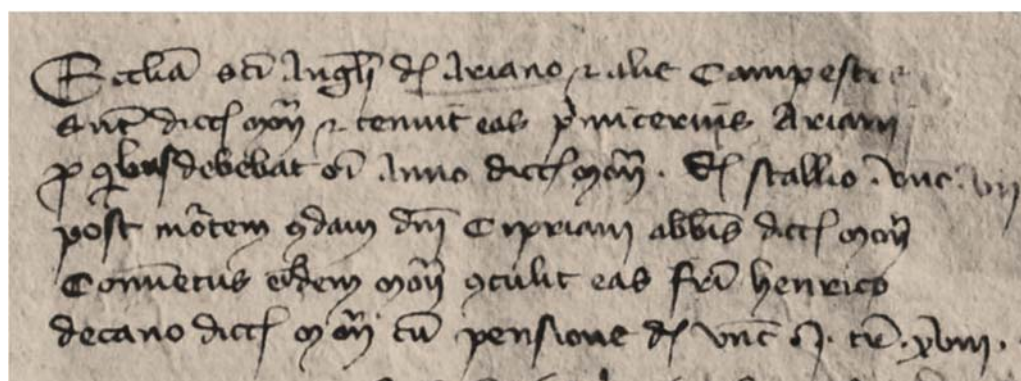 Ecclia sci Angli d Ariano ⁊ alie Campestre
sunt dicti mon ⁊ tenuit eas primicerius Ariani
p quibus debebat oi Anno dicti mon. d stallio. unc. vii
post mortem qdam dni Cipriani abbis dicti mon
Conuetus eiusdem mon ꝯtulit eas fri henrico
decano dicti mon cu pensione d unc . tr. xviii.